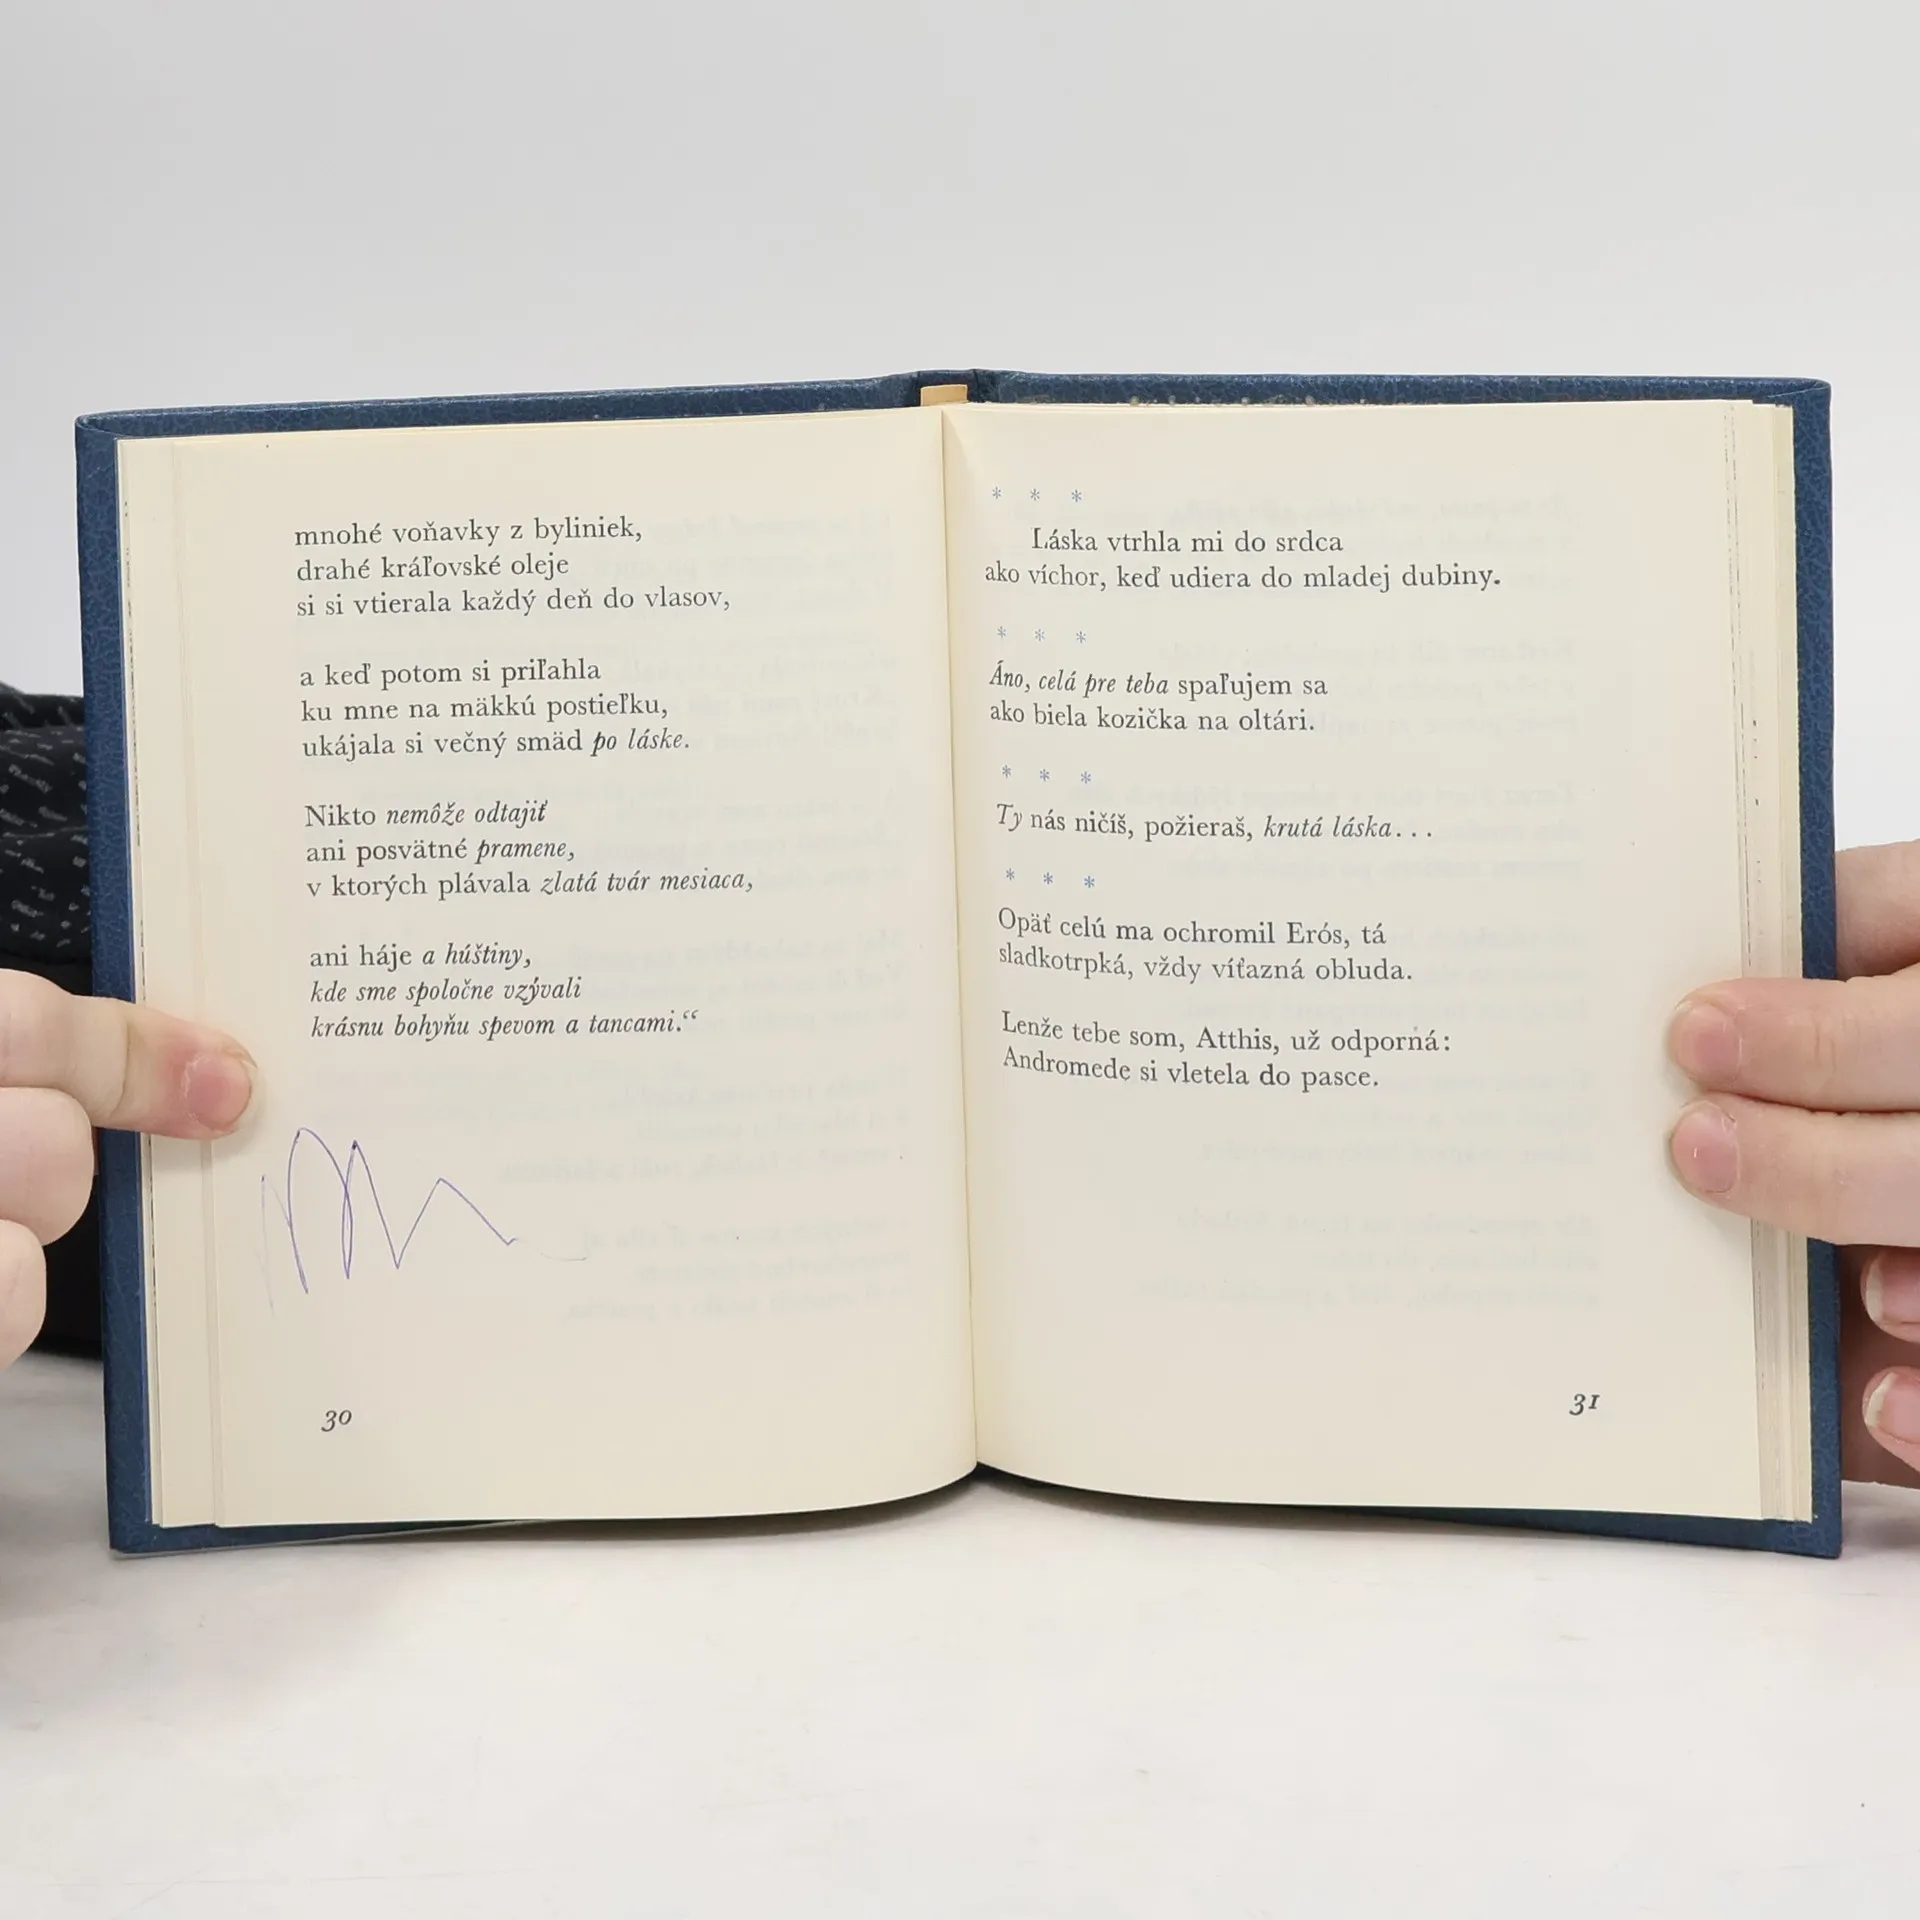 mnohé voňavky z byliniek,
drahé kráľovské oleje
si si vtierala každý deň do vlasov,
a keď potom si priľahla
ku mne na mäkkú postieľku,
ukájala si večný smäd po láske.
Nikto nemôže odtajiť
ani posvätné pramene,
v ktorých plávala zlatá tvár mesiaca,
ani háje a húštiny,
kde sme spoločne vzývali
krásnu bohyňu spevom a tancami.“
30
* * *
Láska vtrhla mi do srdca
ako víchor, keď udiera do mladej dubiny.
* * *
Áno, celá pre teba spaľujem sa
ako biela kozička na oltári.
* * *
Ty nás ničíš, požieraš, krutá láska...
* * *
Opäť celú ma ochromil Erós, tá
sladkotrpká, vždy víťazná obluda.
Lenže tebe som, Atthis, už odporná:
Andromede si vletela do pasce.
31